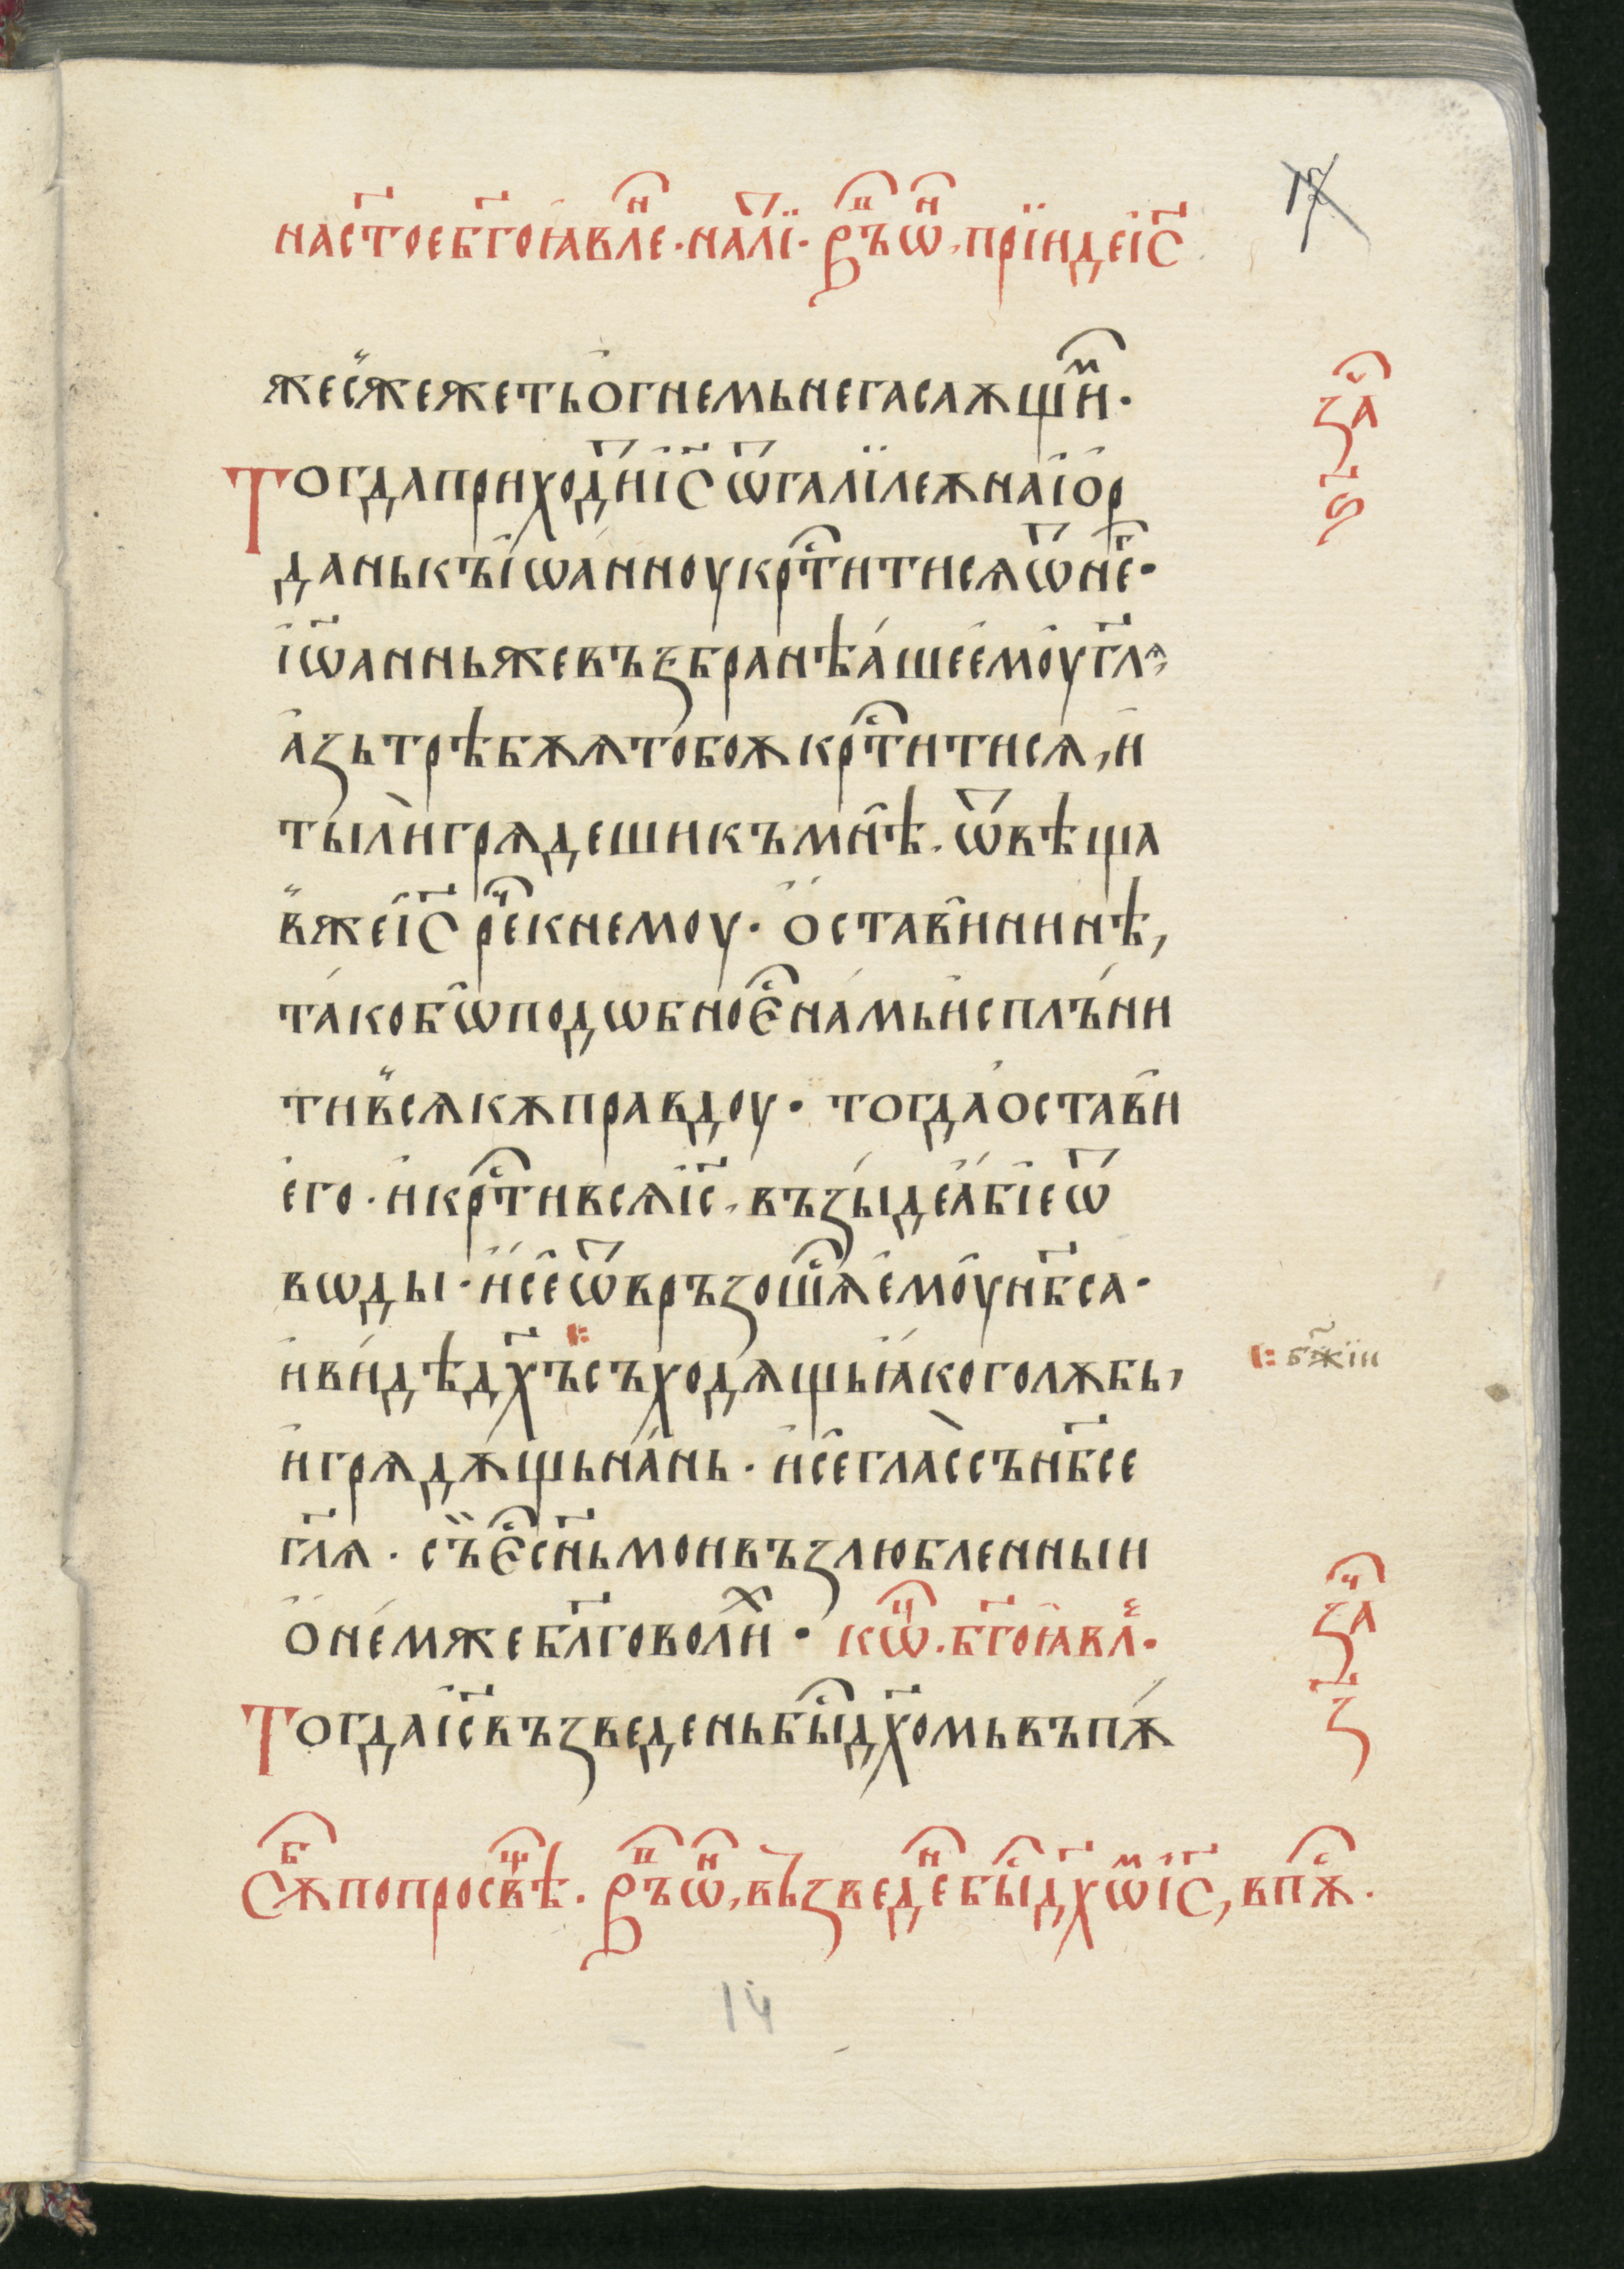 на ст҃ое бг҃оꙗвлеⷩ҇ · на лиⷮ҇ · врⷨ҇ъ ѡⷩ҇, прїиде і҆с҃
же съжежеть ѻ҆гнемь негасаѫщиⷨ҇ ·
Тогда приходиⷮ҇ і҆с҃ ѿ галїлеѫ на і҆ѻр
дань къ і҆ѡанноу крⷭ҇титисѧ ѿ не҃г ·
і҆ѡ҃аннь же възбранѣаше е҆моу гл҃ѧ,
а҆зь трѣбѫѧ тобоѫ крⷭ҇титисѧ, и҆
ты ли грѧдеши къ мнѣ · ѿвѣща
в же і҆с҃ реⷱ҇ к немоу · ѻ҆стави нинѣ,
тако бѡ подѡбно єⷭ҇ намь и҆сплъни
ти въсѧкѫ правдоу · тогда остави
е҆го · и҆ крⷭ҇тивсѧ і҆с҃, възыде абїе ѿ
вѡды · и҆ се ѿврьзошѧⷭ҇ е҆моу нб҃са ·
и҆ видѣ дх҃ъ съходѧщь ꙗко голѫбь,
и҆ грѧдѫщь на нь · и҆ се глас съ нб҃се
гл҃ѧ · съ єⷭ҇ сн҃ь мои възлюбленныи
ѻ҆ немже бл҃говолиⷯ · коⷰ҇ · бг҃оꙗвлⷺ ·
Тогда і҆с҃ възведень быⷭ҇ дх҃омь въ пѫ
сѫⷠ҇ по просвѣⷳ҇ · врⷨ҇ъ ѡⷩ҇, възведеⷩ҇ быⷭ҇ дх҃ѡⷨ і҆с҃, в пѫⷭ҇ ·
заⷱ҇
ѕ
бж҃їи
заⷱ҇
з
14